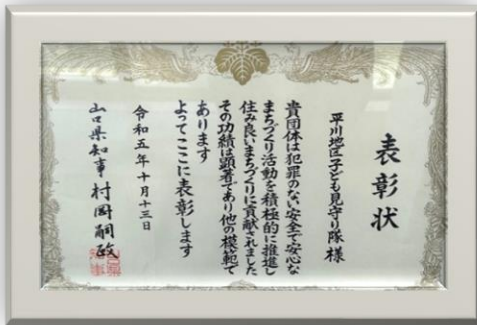 表彰状
平川地区子ども見守り隊様
貴団体は犯罪のない安全で安心な
まちづくり活動を積極的に推進し
住み良いまちづくりに貢献されました
その功績は顕著であり他の模範で
あります
よってここに表彰します
令和五年十月十三日
山口県知事村岡嗣政